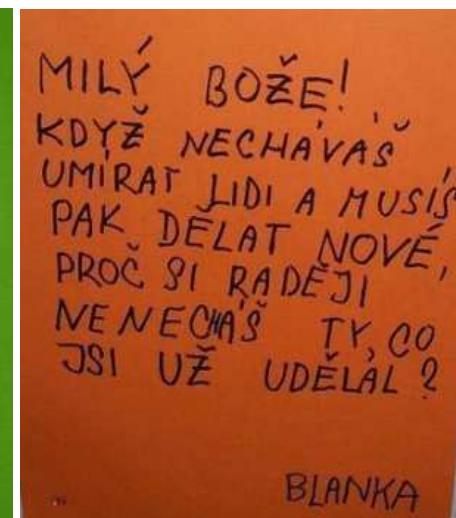 MILÝ BOŽE!
KDYŽ NECHÁVAŠ
UMÍRAT LIDI A MUSÍŠ
PAK DĚLAT NOVÉ,
PROČ SI RADĚJI
NENECHÁŠ TY, CO
JSI UŽ UDĚLAL?
BLANKA